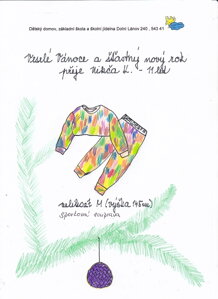 Dětský domov, základní škola a školní jídelna Dolní Lánov 240, 543 41
Veselé Vánoce a šťastný nový rok
přeje Nikča K. - 11 let
velikost M (výška 145cm)
sportovní souprava